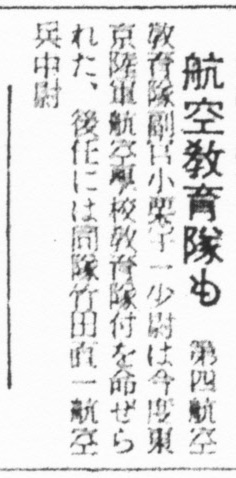 航空教育隊も 第四航空
教育隊副官小栗宇一少尉は今度東
京陸軍航空学校教育隊付を命ぜら
れた、後任には同隊竹田直一航空
兵中尉